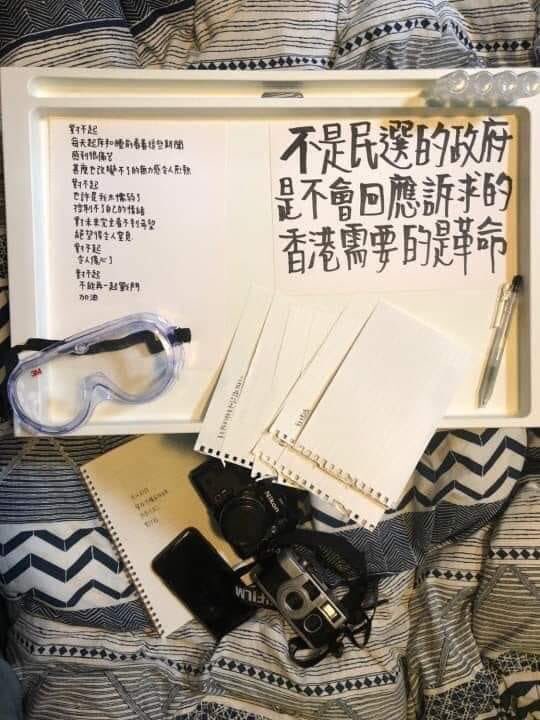 對不起
每天起床和睡前看着這些新聞
感到很痛苦
甚麼也改變不了的無力感令人煎熬
對不起
也許是我太懦弱了
控制不了自己的情緒
對未來完全看不到希望
絕望得令人窒息
對不起
令人傷心了
對不起
不能再一起戰鬥
加油
不是民選的政府
是不會回應訴求的
香港需要的是革命
3M
FILM